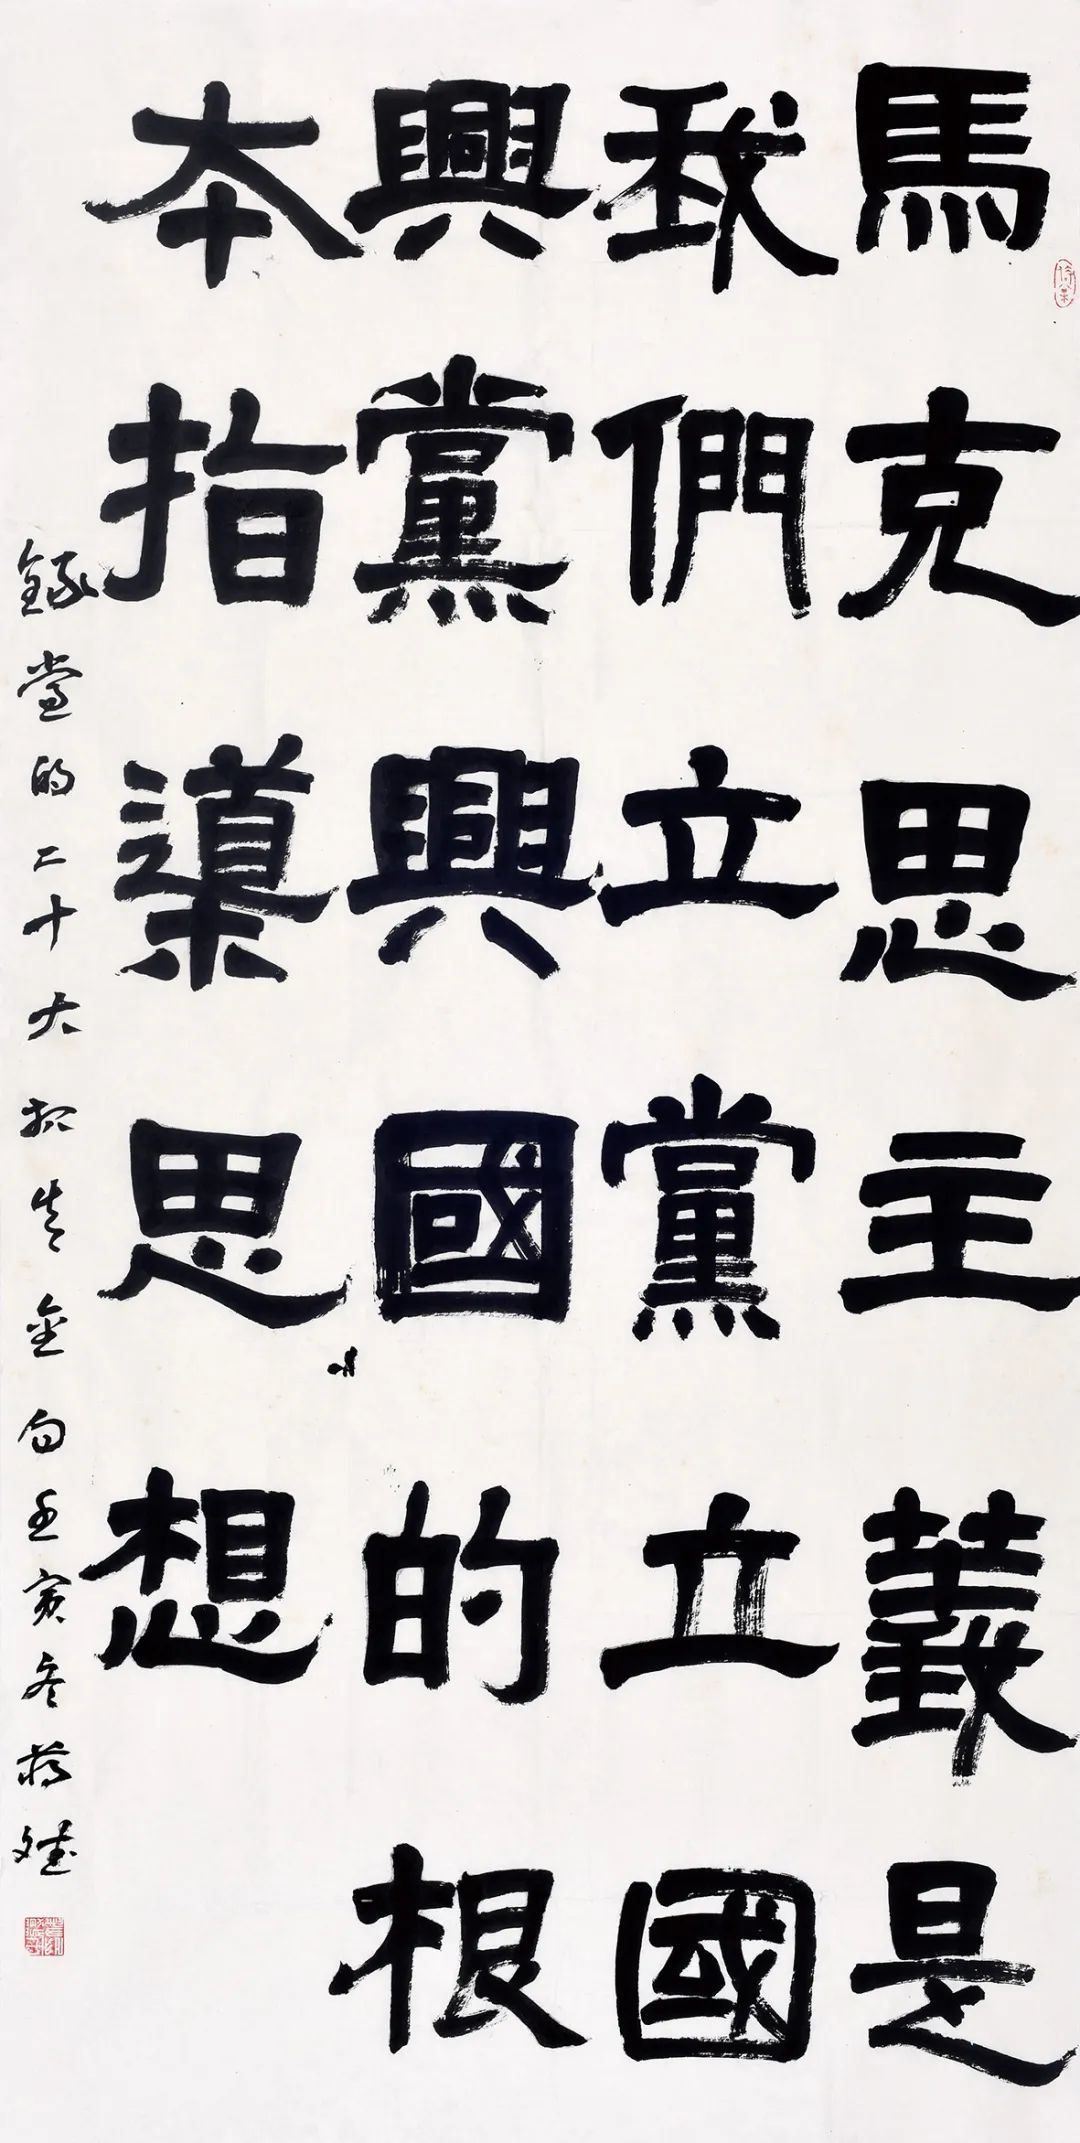 馬克思主義是
我們立黨立國
興黨興國的根
本指導思想
錄黨的二十大報告金句壬寅冬蔣斌